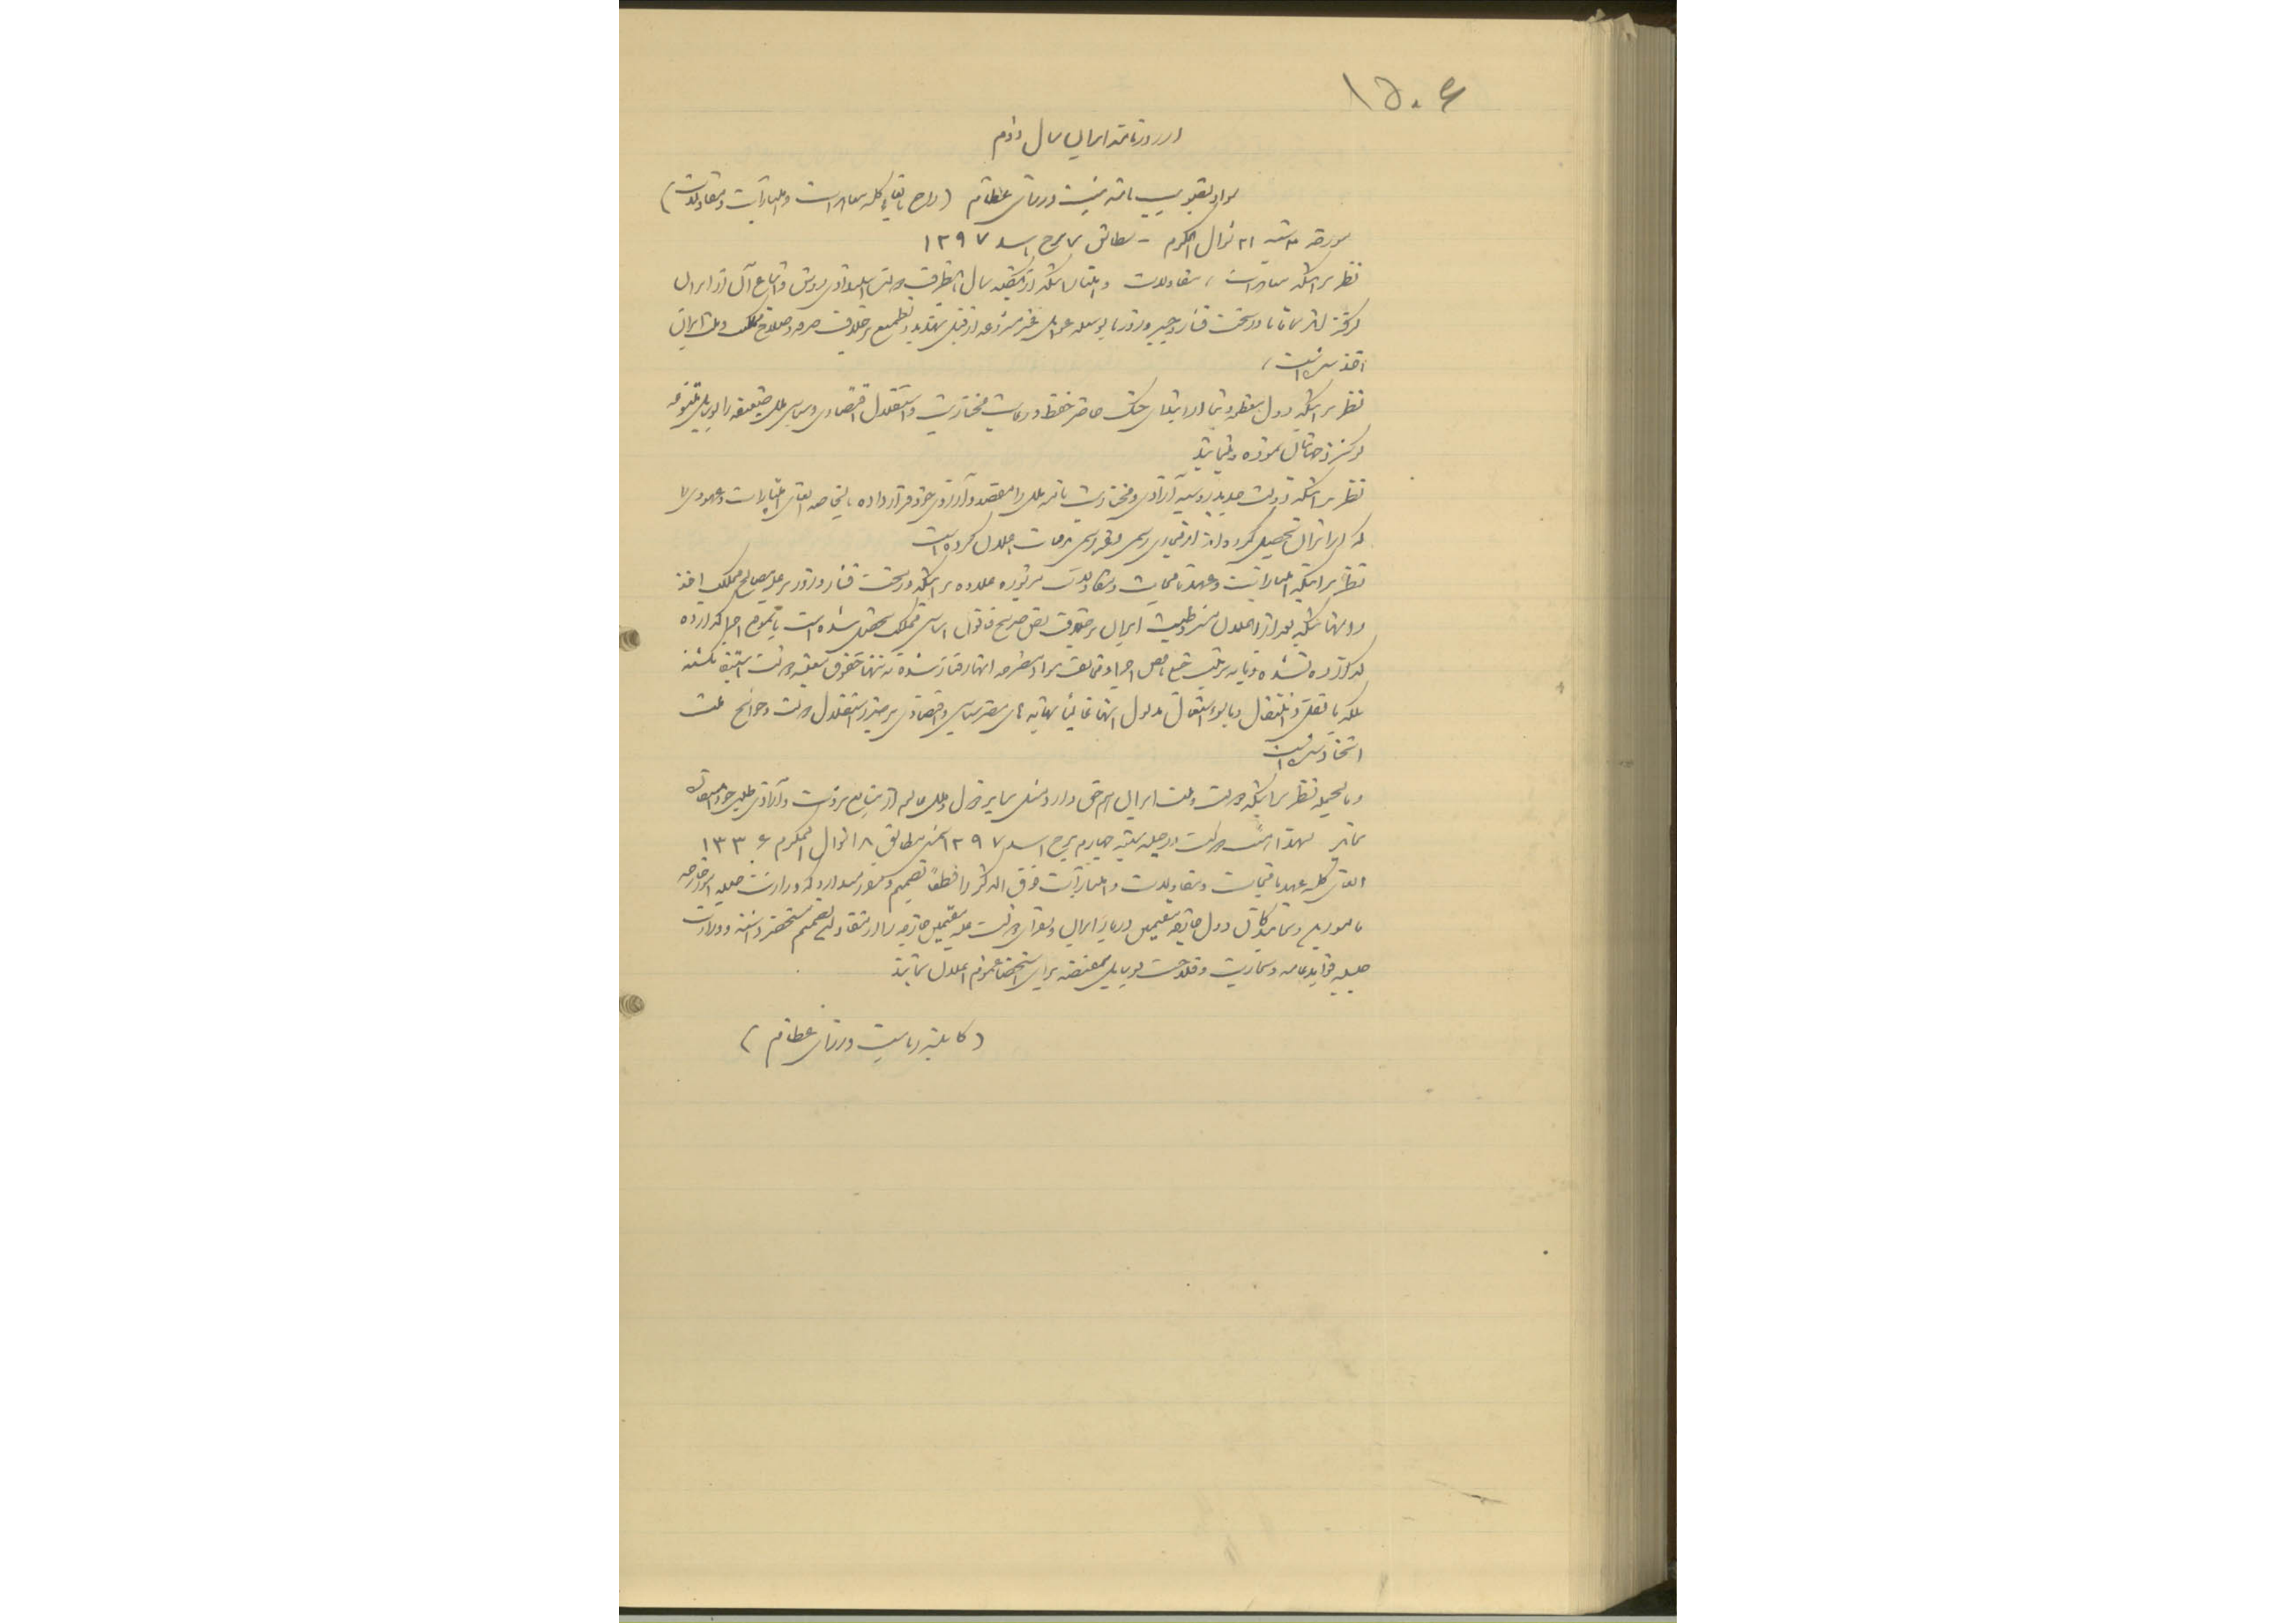 ۱۵۰۶
از روزنامه ایران سال دوم
سواد تصویب نامه هیئت وزرای عظام (راجع بالغاء کلیه معاهدات و امتیازات و مقاولات)
مورخه ۳ شنبه ۲۱ شوال المکرم - مطابق ۷ برج اسد ۱۲۹۷
نظر باینکه معاهدات ، مقاولات و امتیازاتیکه از یکصد سال باینطرف دولت استبدادی روس و اتباع آن از ایران
گرفته اند تماماً در تحت فشار و جبر و زور یا بوسیله عوامل غیر مشروعه از قبیل تهدید و تطمیع بر خلاف صرفه و صلاح مملکت و ملت ایران
اخذ شده است ،
نظر باینکه دول معظمه دنیا از ابتدای جنگ حاضر حفظ و رعایت مختاریت و استقلال اقتصادی و سیاسی ملل ضعیفه را بوسایل مختلفه
گوشزد جهانیان نموده و مینمایند
نظر باینکه دولت جدید روسیه آزادی و مختاریت تامه ملل را مقصد و آرزوی خود قرار داده بالخاصه الغای امتیازات و عهودی را
که از ایران تحصیل کرده اند از مجاری رسمی و غیر رسمی بدفعات اعلان کرده است
نظر باینکه امتیازات و عهدنامجات و مقاولات مزبوره علاوه بر اینکه در تحت فشار و زور بر علیه مصالح مملکت اخذ
و آنهائیکه بعد از اعلان مشروطیت ایران بر خلاف نص صریح قانون اساسی مملکت تحصیل شده است یا بموقع اجرا گذارده
گذارده نشده و یا بترتیب ناقص اجرا و مخالف مواد مصرحه آنها رفتار شده نه تنها حقوق معینه دولت استیفا نگشته
بلکه با نقل و انتقال و با سوء استعمال مدلول آنها غالباً بهانه های مضر سیاسی و اقتصادی بر ضد استقلال دولت و حوائج ملت
اتخاذ شده است
و بالجمله نظر باینکه دولت و ملت ایران هم حق دارد مثل سایر دول و ملل عالم از منابع ثروت و آزادی طبیعی خود استفاده
نماید لهذا هیئت دولت در جلسه شنبه چهارم برج اسد ۱۲۹۷ شمسی مطابق ۱۸ شوال المکرم ۱۳۳۶
الغای کلیه عهدنامجات و مقاولات و امتیازات فوق الذکر را قطعاً تصمیم و مقرر میدارد که وزارت جلیله امور خارجه
مامورین و نمایندگان دول خارجه مقیمین دربار ایران و سفرای دولت علیه مقیمین خارجه را از مفاد این تصمیم مستحضر داشته و وزارت
جلیله فوائد عامه و تجارت و فلاحت بوسایل مقتضیه برای استحضار عموم اعلان نمایند
(کابینه ریاست وزرای عظام)